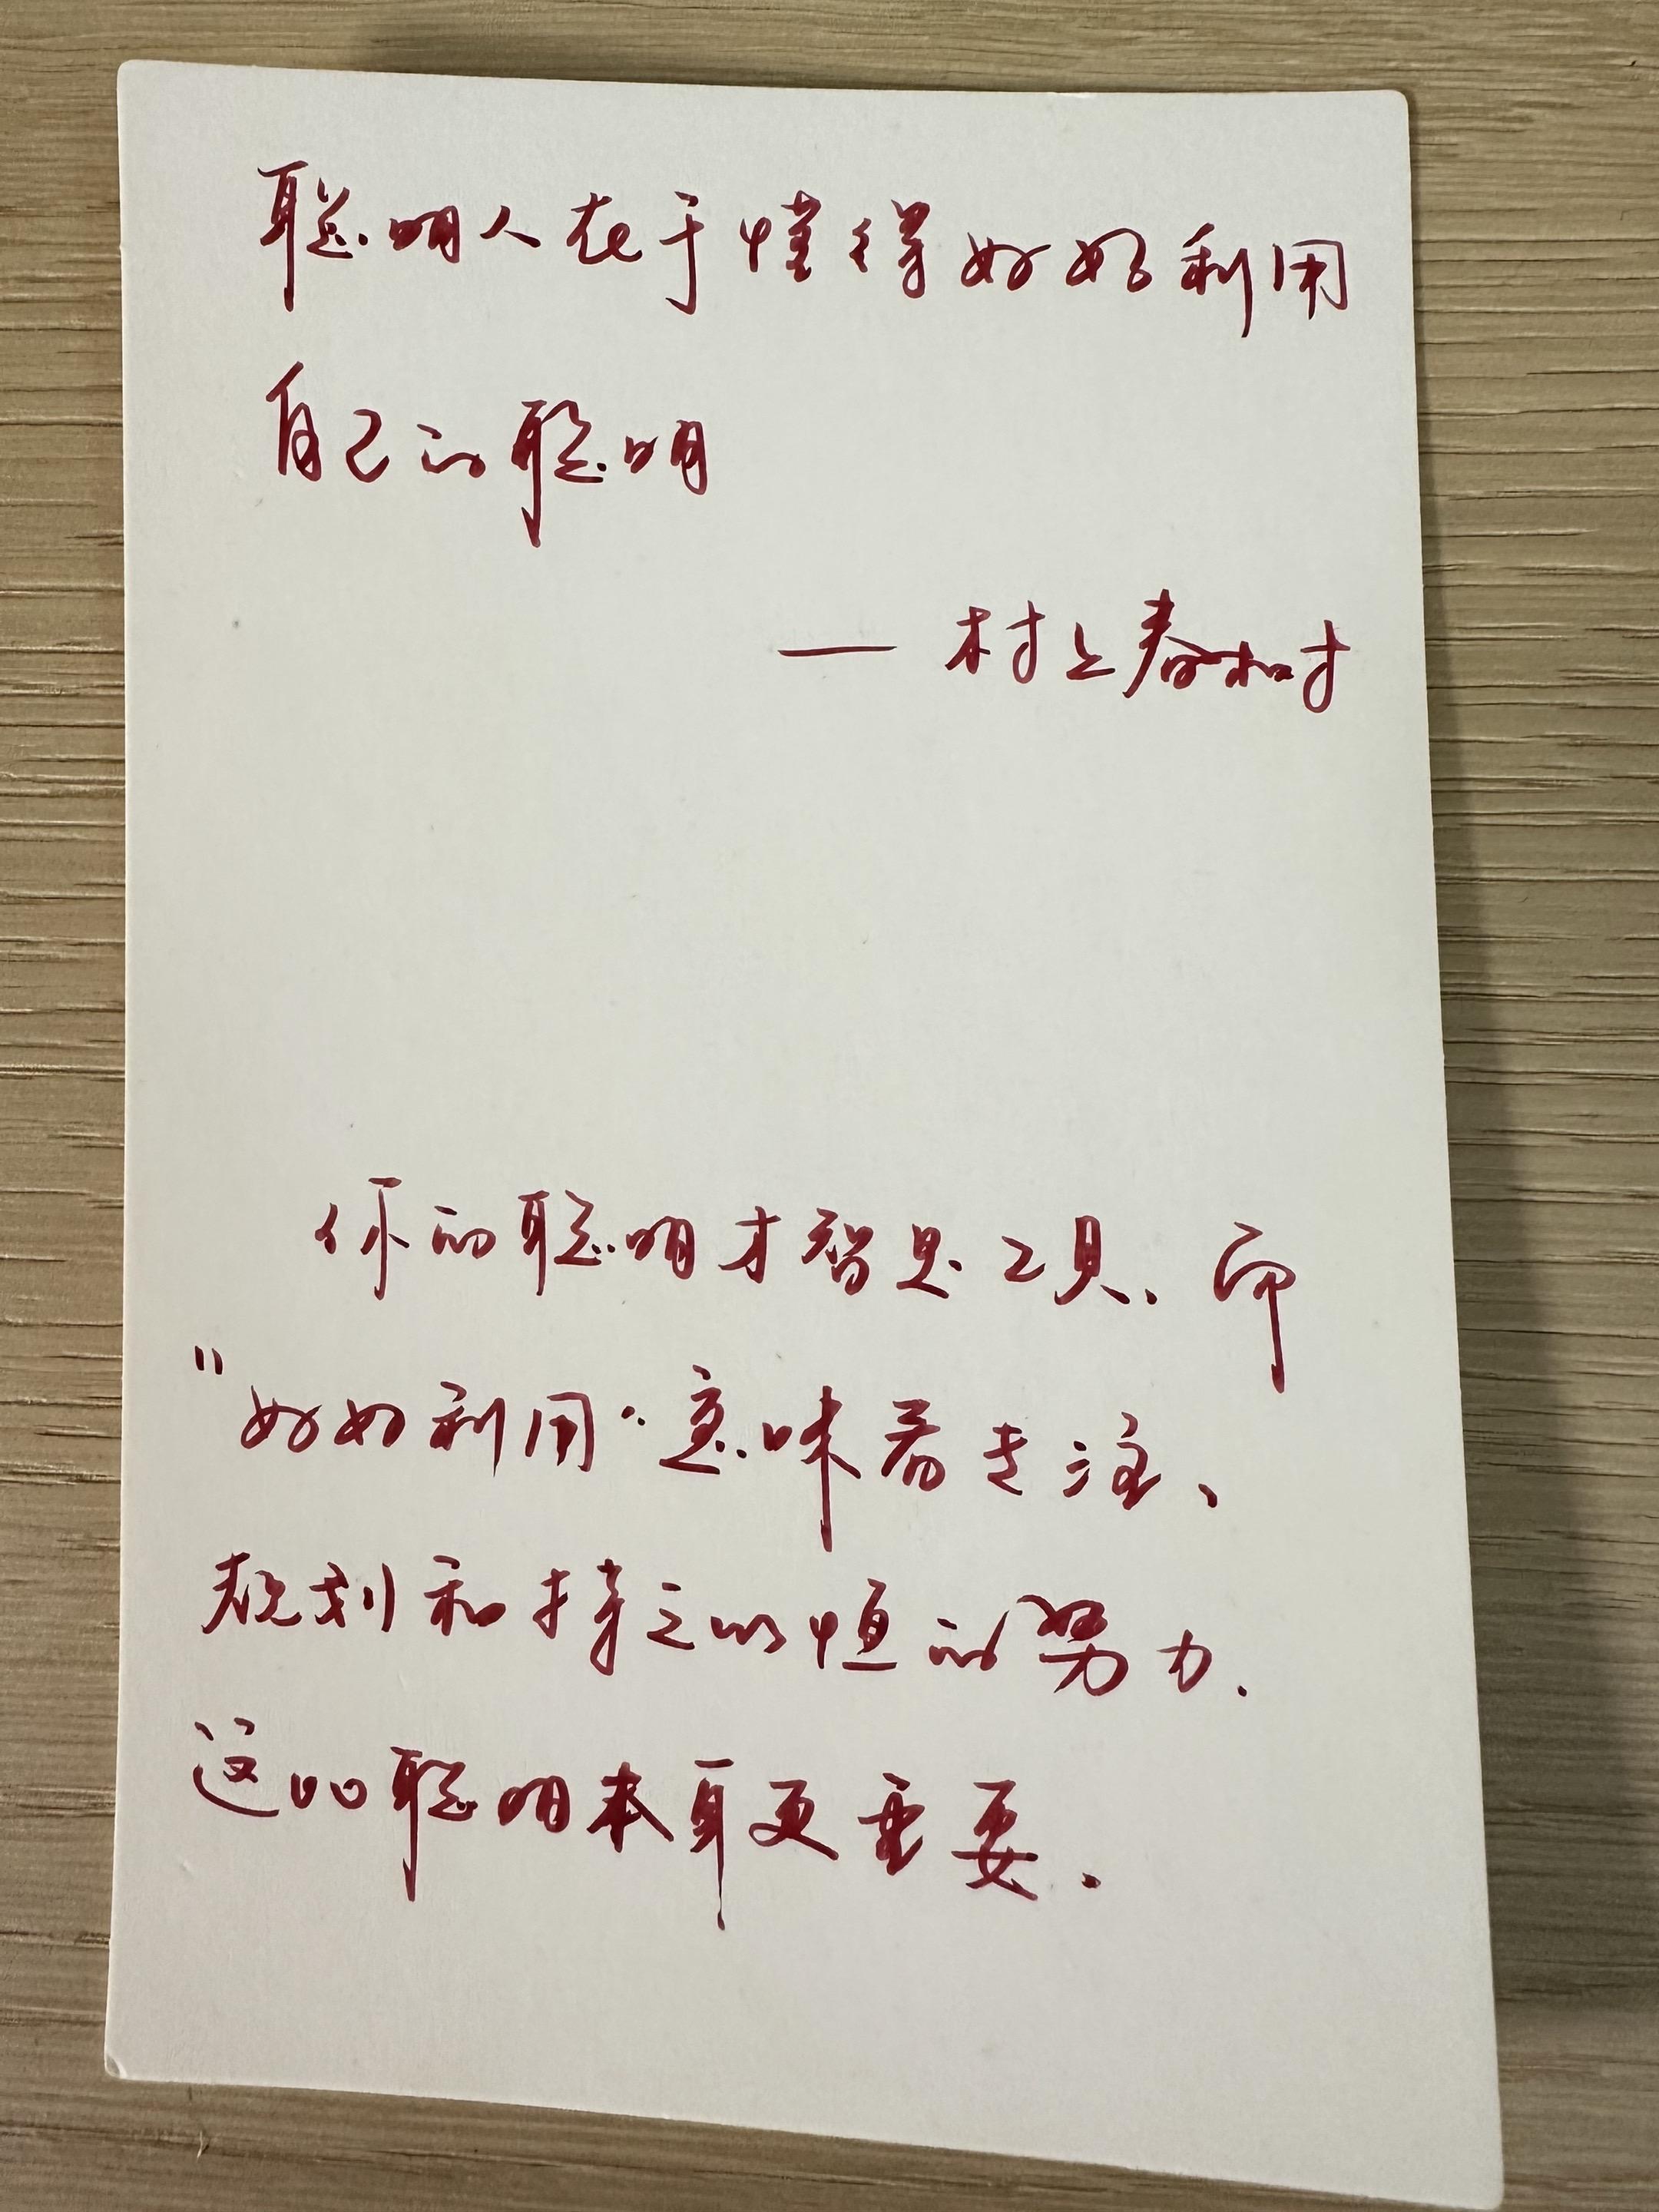 聪明人在于懂得好好利用
自己的聪明
— 村上春树
你的聪明才智是工具、而
"好好利用"意味着专注、
规划和持之以恒的努力.
这比聪明本身更重要.